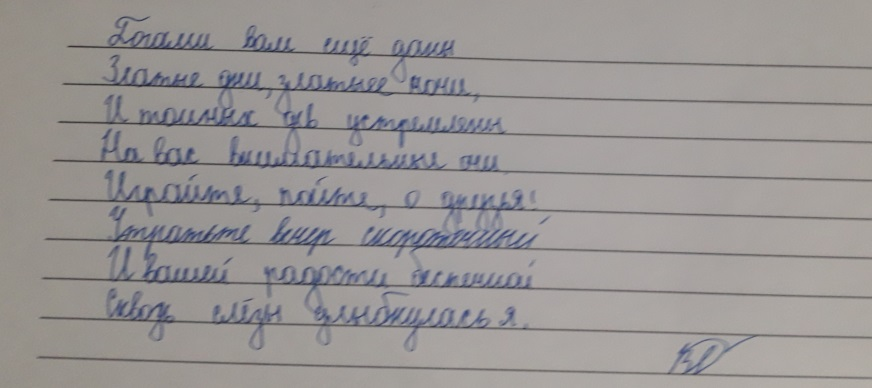 Богами вам ещё даны
Златые дни, златые ночи,
И томных дев устремлены
На вас внимательные очи
Играйте, пойте, о друзья!
Утратьте вечер скоротечный
И вашей радости беспечной
Сквозь слёзы улыбнулась я.